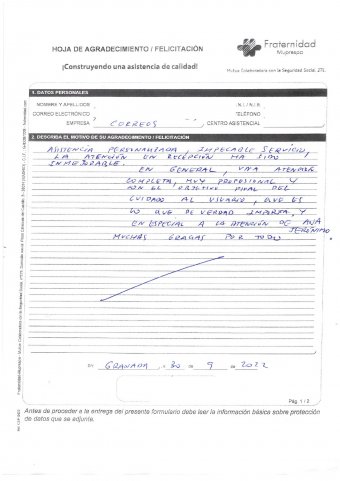 HOJA DE AGRADECIMIENTO / FELICITACIÓN
Fraternidad
Muprespa
¡Construyendo una asistencia de calidad!
Mutua Colaboradora con la Seguridad Social, 275
1. DATOS PERSONALES
NOMBRE Y APELLIDOS
N.I. / N.I.E.
CORREO ELECTRÓNICO
TELÉFONO
EMPRESA CORREOS
CENTRO ASISTENCIAL
2. DESCRIBA EL MOTIVO DE SU AGRADECIMIENTO / FELICITACIÓN
ASISTENCIA PERSONALIZADA, IMPECABLE SERVICIO,
LA ATENCIÓN EN RECEPCIÓN HA SIDO
INMEJORABLE.
EN GENERAL, UNA
COMPLETA, MUY PROFESIONAL Y
CON EL OBJETIVO FINAL DEL
CUIDADO AL USUARIO, QUE ES
LO QUE DE VERDAD IMPORTA, Y
EN ESPECIAL A LA ATENCIÓN DE ANA
JERÓNIMO
MUCHAS GRACIAS POR TODO
En GRANADA, a 30 de 9 de 2022
Pág. 1 / 2
Antes de proceder a la entrega del presente formulario debe leer la información básica sobre protección
de datos que se adjunta.